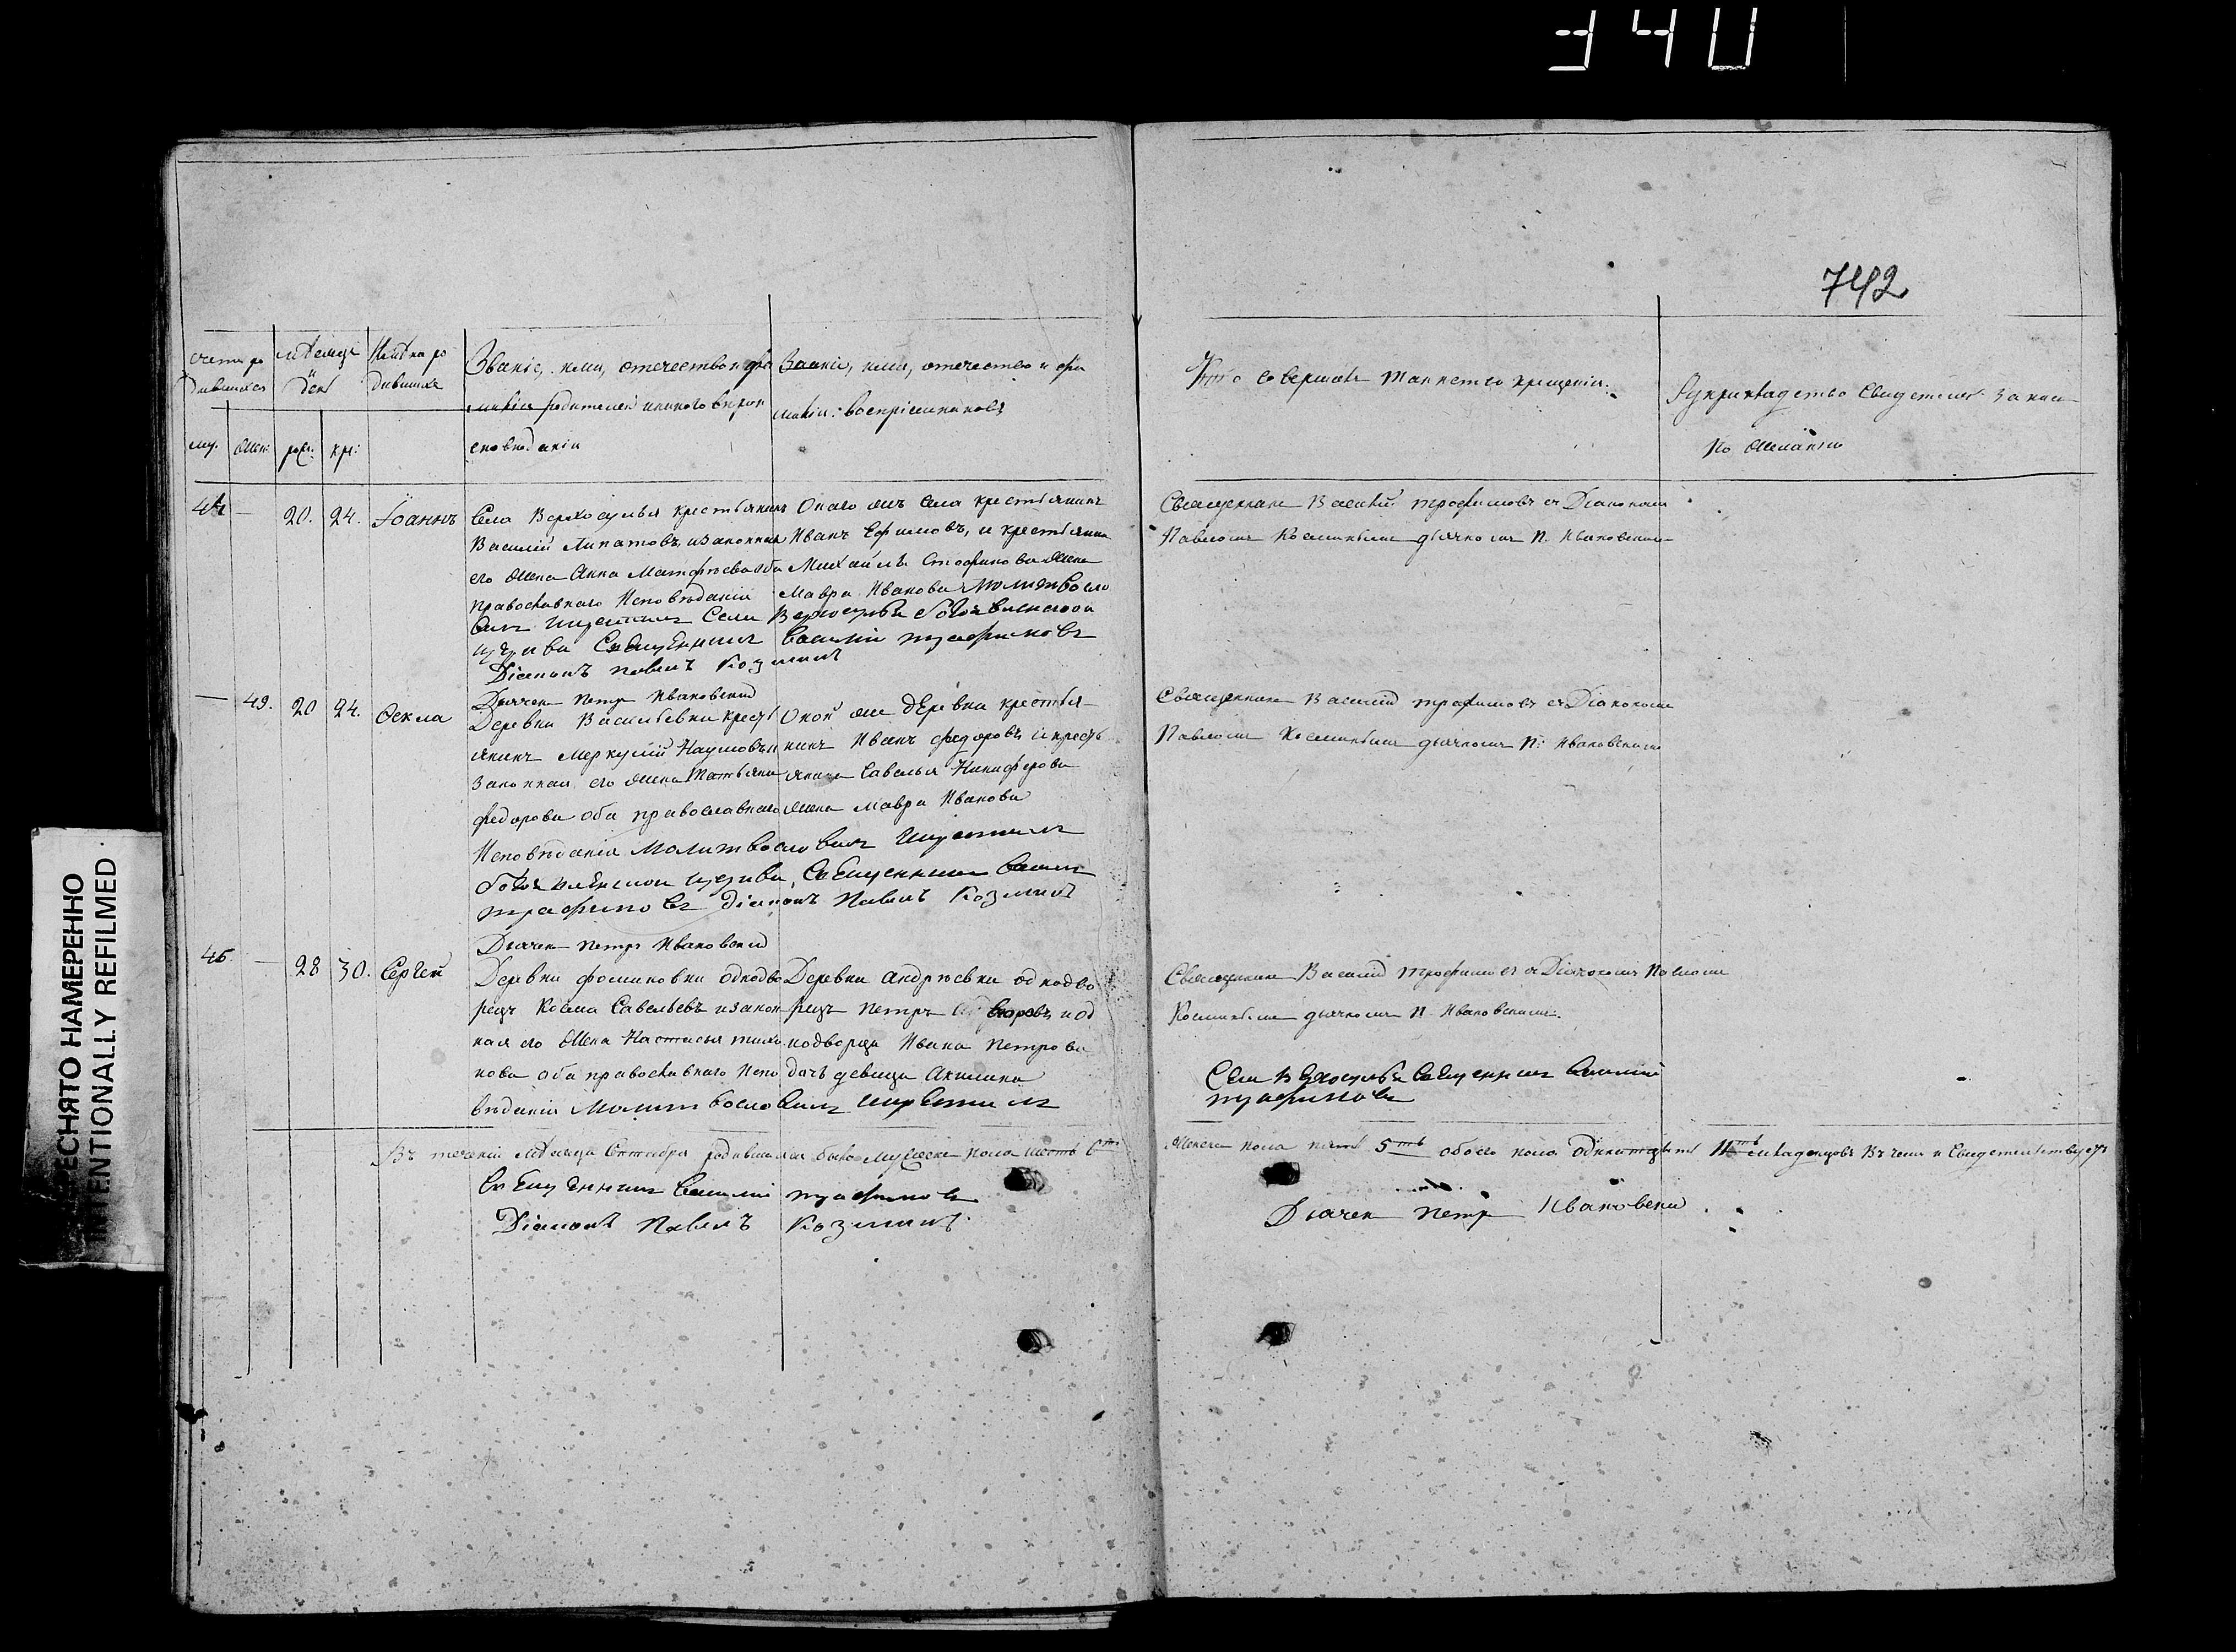 340
742
ПЕРЕСНЯТО НАМЕРЕННО
INTENTIONALLY REFILMED
счетъ ро
дившихся
мѣсяцъ
и
день
Имѣна ро
дившихся
Званіе, имя, отечество и фа
милія родителей и какого вѣроис
повѣданія
Званіе, имя, отечество и фа
милія: воспріемниковъ
Кто совершалъ таинство крещенія.
Рукоприкладство свидетелей записи
по желанію
му. жен: рож: кре:
44 — 20. 24. Іоаннъ
Села Верхосулья крестьянинъ
Василій Липатовъ, и законная
его жена Анна Матфѣева оба
православнаго Исповѣданія
Онаго жъ села крестьянинъ
Иванъ Ефимовъ, и крестьянина
Михаила жена
Мавра Иванова
Молитвословилъ и крестилъ Села Верхосулья Богоявленской
церкви Священникъ Василій Трофимовъ
Діаконъ Павелъ Козминъ
Дьячек Петр Ивановский
Священникъ Василій Трофимовъ съ Діакономъ
Павломъ Косминымъ дьячкомъ П. Ивановскимъ
— 49. 20 24. Фекла
Деревни Васильевки кресть
янинъ Меркулій Наумовъ и
законная его жена Татьяна
Федорова оба православнаго
Исповѣданія
Оной же деревни крестья
нинъ Иванъ Федоровъ и кресть
янина Савелья Никифорова
жена Мавра Иванова
Молитвословилъ и крестилъ
Богоявленской церкви, Священникъ Василій
Трофимовъ Діаконъ Павелъ Козминъ
Дьячек Петр Ивановский
Священникъ Василій Трофимовъ съ Діакономъ
Павломъ Косминымъ дьячкомъ П: Ивановскимъ
45 — 28 30. Сергей
Деревни Фоминовки однодво
рецъ Косма Савельевъ и закон
ная его жена Настасья Тихо
нова оба православнаго Испо
вѣданія
Деревни Андрѣевки однодво
рецъ Петръ и од
нодворца Ивана Петрова
дочь девица Акилина
Молитвословилъ и крестилъ
Священникъ Василій Трофимовъ съ Діакономъ Павломъ
Косминымъ дьячкомъ П. Ивановскимъ.
Села Верхосулья Священникъ Василій
Трофимовъ
Въ теченіи мѣсяца Октября родившихся было мужеска пола шесть 6ть
женска пола пять 5ть обоего пола одинадцать 11ть младенцовъ Въ чемъ и Свидетельствуютъ
Священникъ Василій Трофимовъ
Діаконъ Павелъ Козминъ.
Дьячек Петр Ивановский